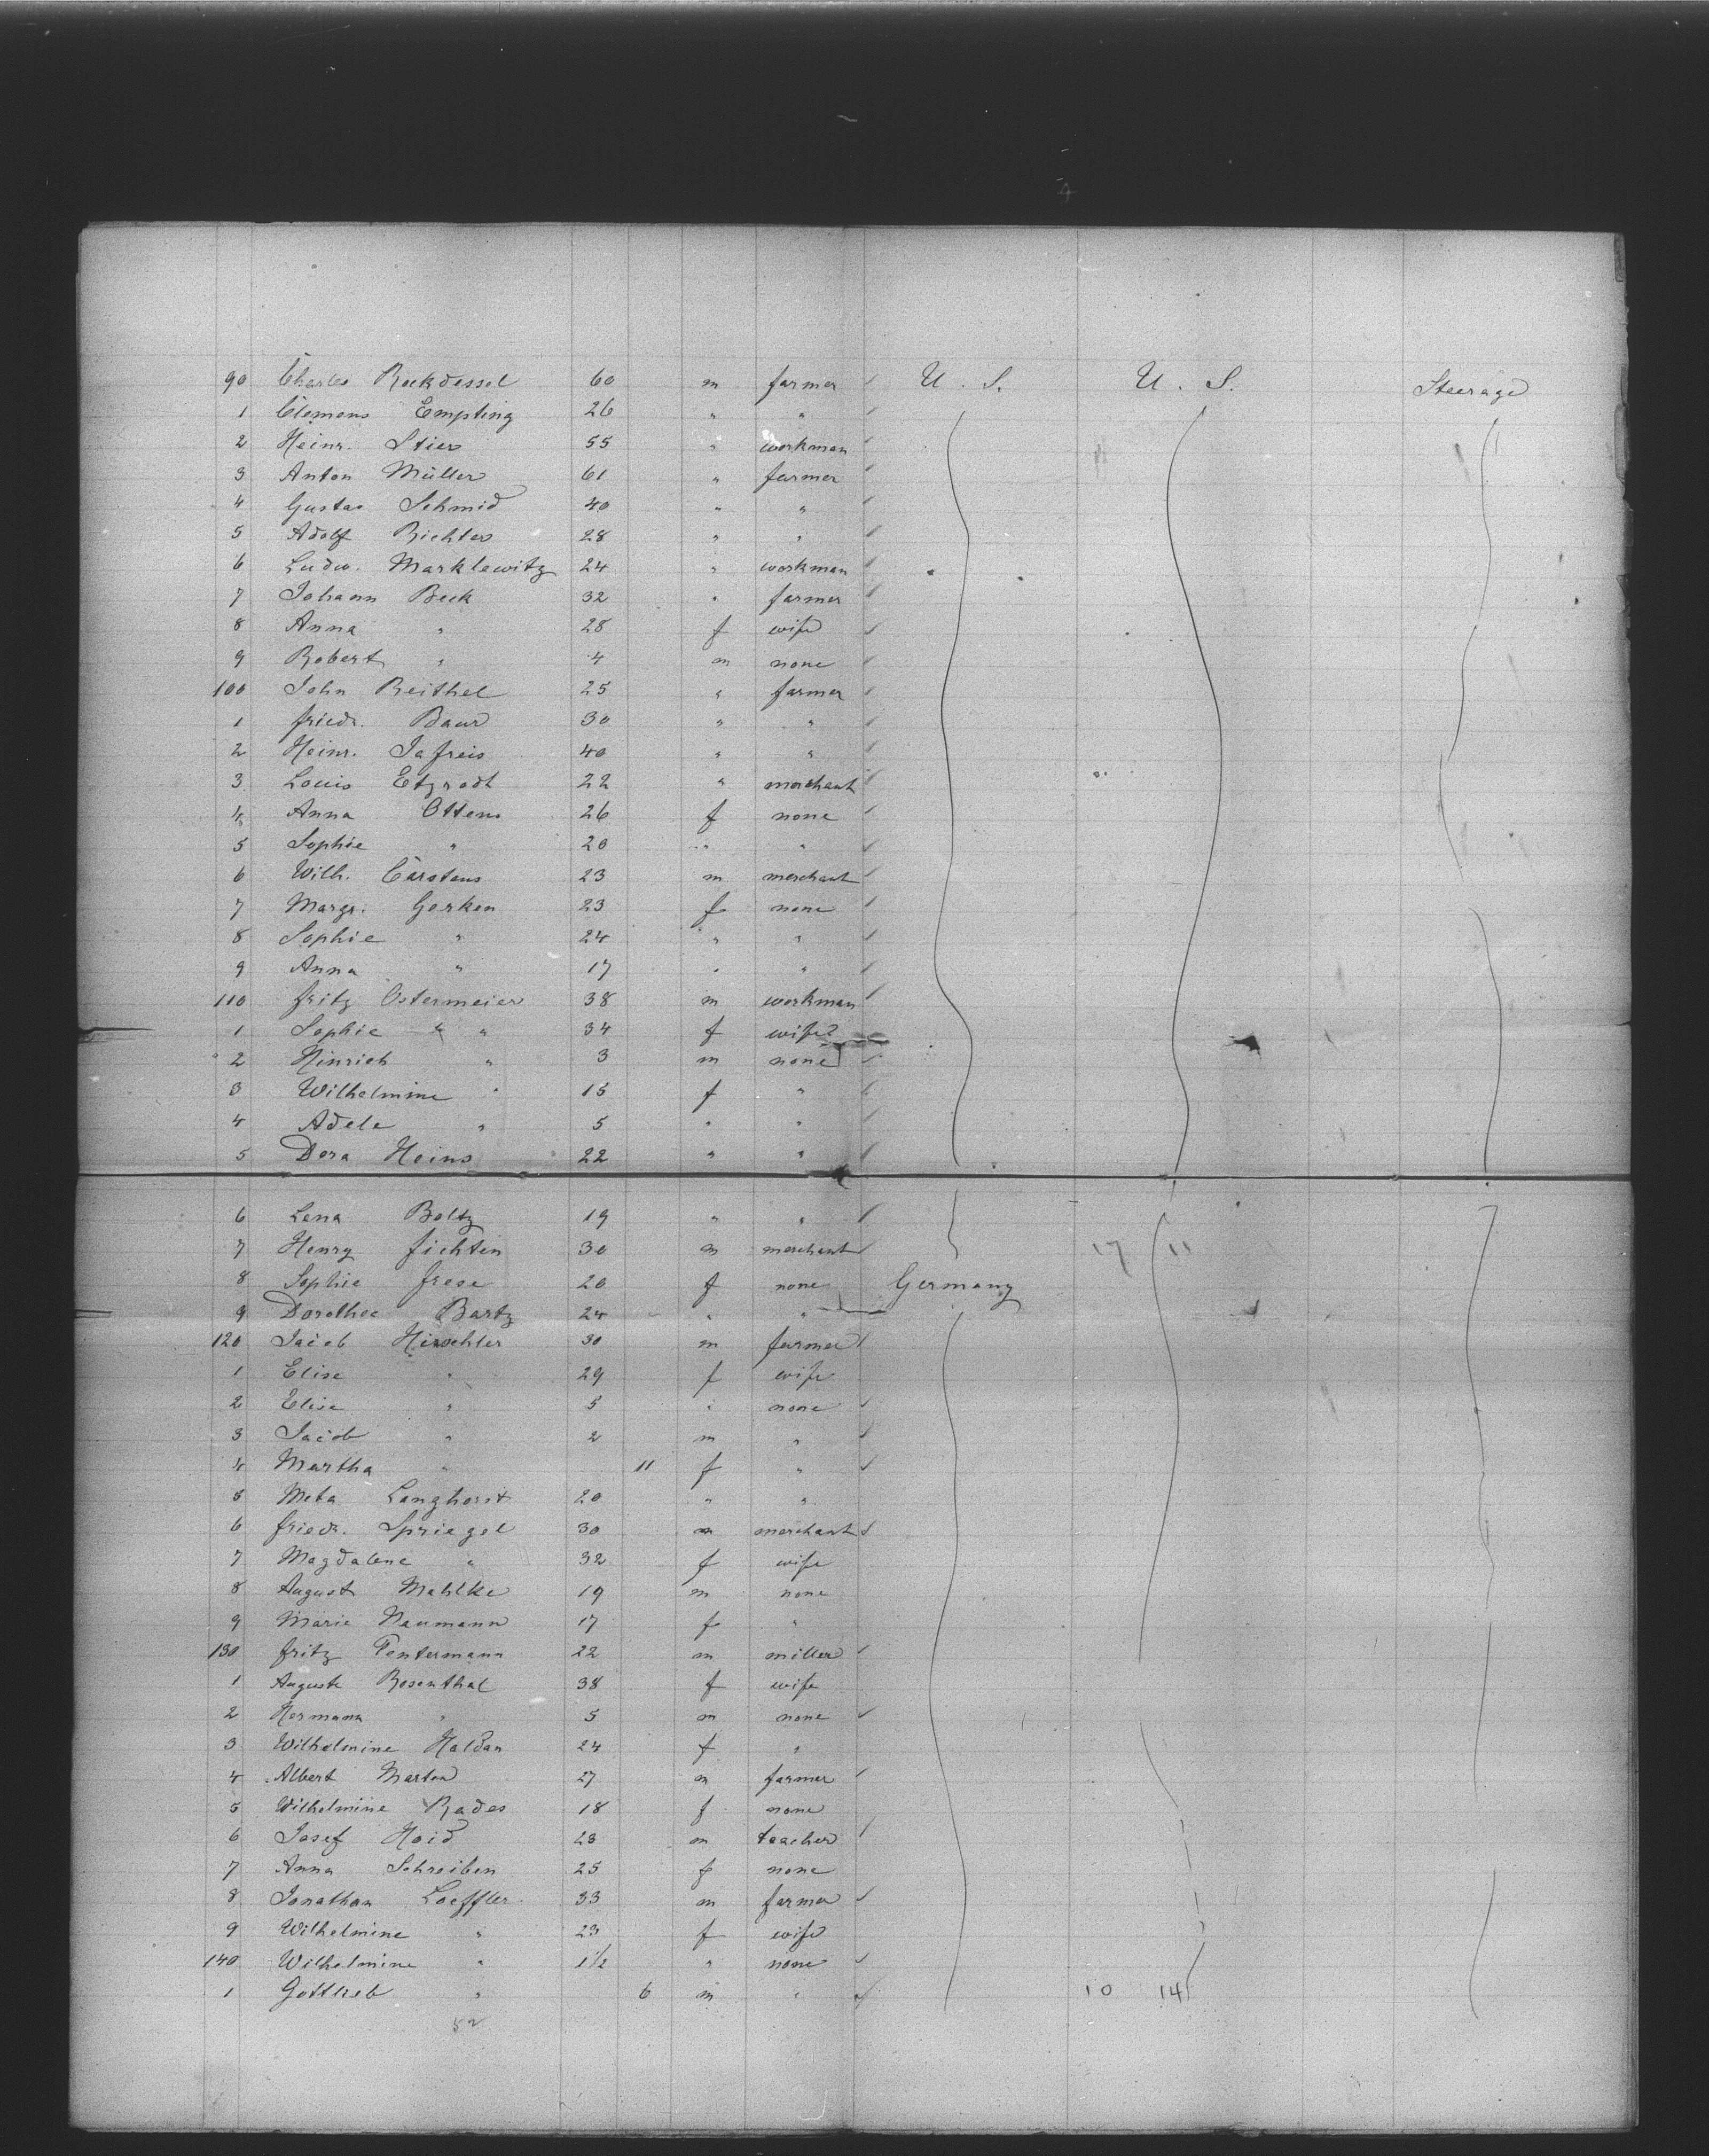 90 Charles Reekdessel 60 m farmer U. S. U. S. Steerage
1 Clemens Empting 26 " "
2 Heinr. Stier 55 " workman
3 Anton Müller 61 " farmer
4 Gustav Schmid 40 " "
5 Adolf Richter 28 " "
6 Ludw. Marklewitz 24 " workman
7 Johann Beck 32 " farmer
8 Anna " 28 f wife
9 Robert " 4 m none
100 John Reithel 25 " farmer
1 Friedr. Baur 30 " "
2 Heinr. Jafreis 40 " "
3 Louis Etzrodt 22 " merchant
4 Anna Ottens 26 f none
5 Sophie " 20 " "
6 Wilh. Carstens 23 m merchant
7 Margr. Gerken 23 f none
8 Sophie " 24 " "
9 Anna " 17 " "
110 Fritz Ostermeier 38 m workman
1 Sophie " " 34 f wife
2 Hinrich " 3 m none
3 Wilhelmine " 15 f "
4 Adele " 5 " "
5 Dora Heins 22 " "
6 Lena Boltz 19 " "
7 Henry Fichten 30 m merchant 17 11
8 Sophie Frese 20 f none Germany
9 Dorothee Bartz 24 " "
120 Jacob Hirschler 30 m farmer
1 Elise " 29 f wife
2 Elise " 5 " none
3 Jacob " 2 m "
4 Martha " 11 f "
5 Meta Langhorst 20 " "
6 Friedr. Spriegel 30 m merchant
7 Magdalene " 32 f wife
8 August Mahlke 19 m none
9 Marie Naumann 17 f "
130 Fritz Tentermann 22 m miller
1 Auguste Rosenthal 38 f wife
2 Hermann " 5 m none
3 Wilhelmine Haldan 24 f "
4 Albert Marten 27 m farmer
5 Wilhelmine Rades 18 f none
6 Josef Hoid 23 m teacher
7 Anna Schreiben 25 f none
8 Jonathan Loeffler 33 m farmer
9 Wilhelmine " 23 f wife
140 Wilhelmine " 1 1/2 " none
1 Gottlieb " 6 m " 10 14
52